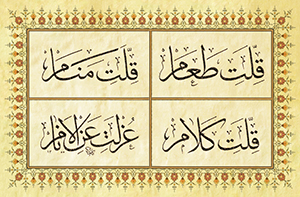 قلّتِ طعام
قلّت منام
قلّتِ كلام
عزلت عن الانام